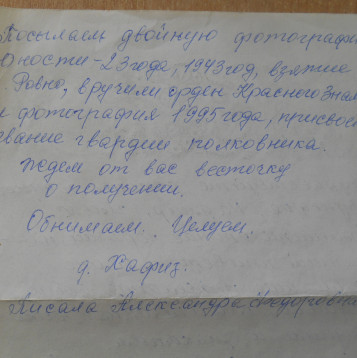 Посылаем двойную фотографи
юности - 23 года, 1943 год, взятие
Ровно, вручили орден Красного Знам
и фотография 1995 года, присвое
звание гвардии полковника.
Ждем от вас весточку
о получении.
Обнимаем. Целуем.
д. Хафиз.
Писала Александра Федоровн